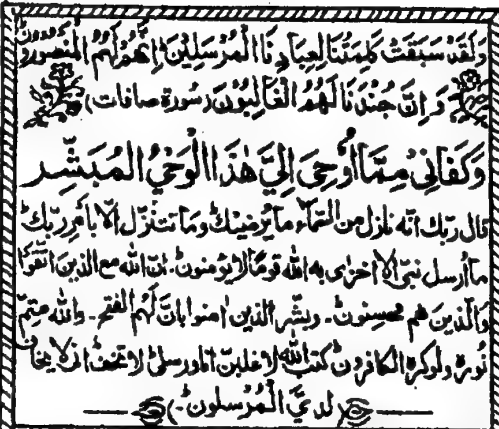 ولقد سبقت كلمتنا لعبادنا المرسلين انهم لهم المنصورون
وان جندنا لهم الغالبون (سورة صافات)
وكفاني مما أوحى إلي هذا الوحي المبشر
قال ربك انه نازل من السماء ما يرضيك وما تتنزل الا بامر ربك
ما أرسل نبي الا اخزى به الله قوما لا يؤمنون ان الله مع الذين اتقوا
والذين هم محسنون وبشر الذين امنوا بان لهم الفتح والله متم
نوره ولو كره الكافرون كتب الله لاغلبن انا ورسلي لا تخف اني لا يخاف
لدي المرسلون